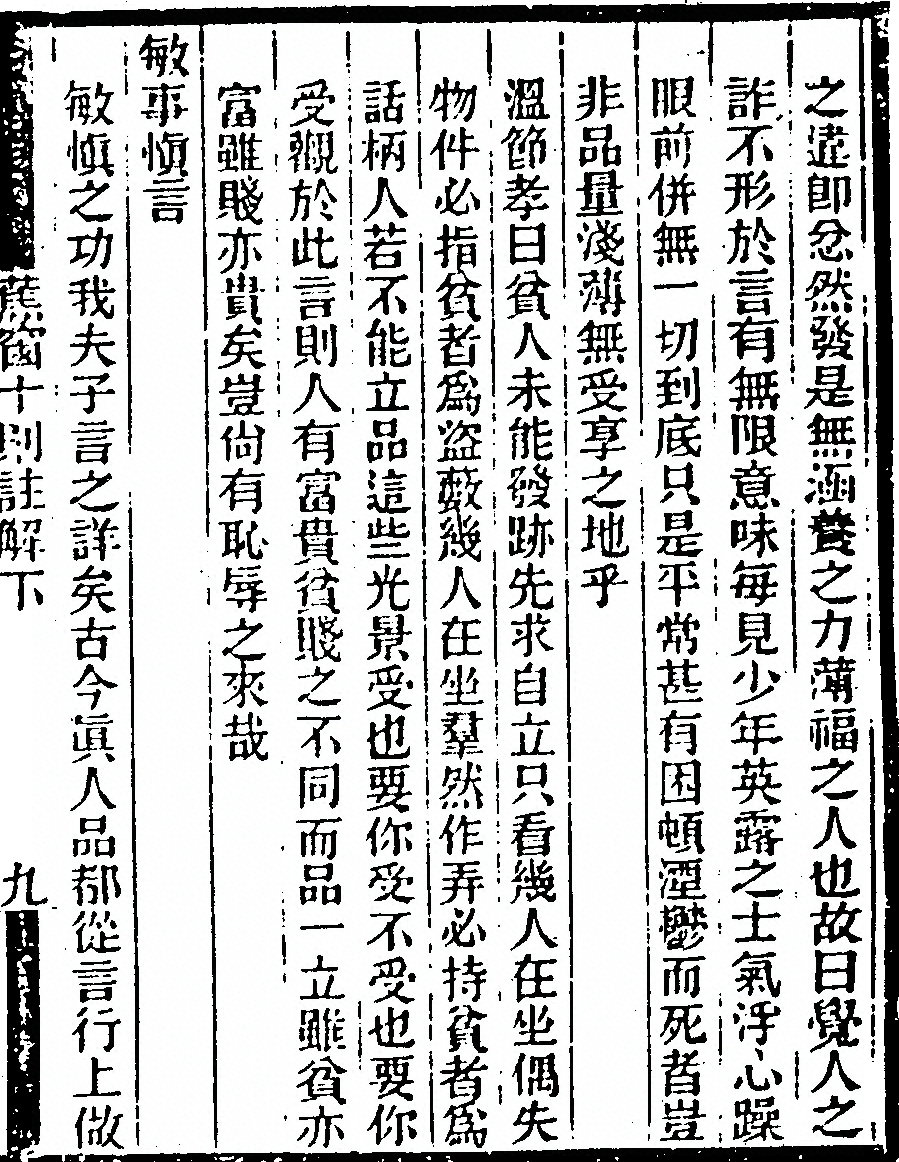 之違卽忿然發是無涵養之力薄福之人也故曰覺人之
詐不形於言有無限意味每見少年英露之士氣浮心躁
眼前倂無一切到底只是平常甚有困頓湮鬱而死者豈
非品量淺薄無受享之地乎
溫節孝曰貧人未能發跡先求自立只看幾人在坐偶失
物件必指貧者爲盜藪幾人在坐羣然作弄必持貧者爲
話柄人若不能立品這些光景受也要你受不受也要你
受觀於此言則人有富貴貧賤之不同而品一立雖貧亦
富雖賤亦貴矣豈尙有恥辱之來哉
敏事愼言
敏愼之功我夫子言之詳矣古今眞人品都從言行上做
蕉窗十則註解下
九